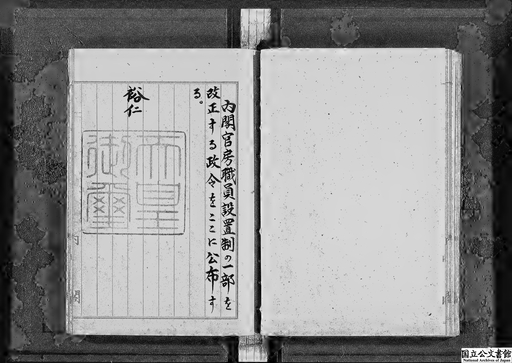 内閣官房職員設置制の一部を
改正する政令をここに公布す
る。
裕仁
天皇
御璽
国立公文書館
National Archives of Japan